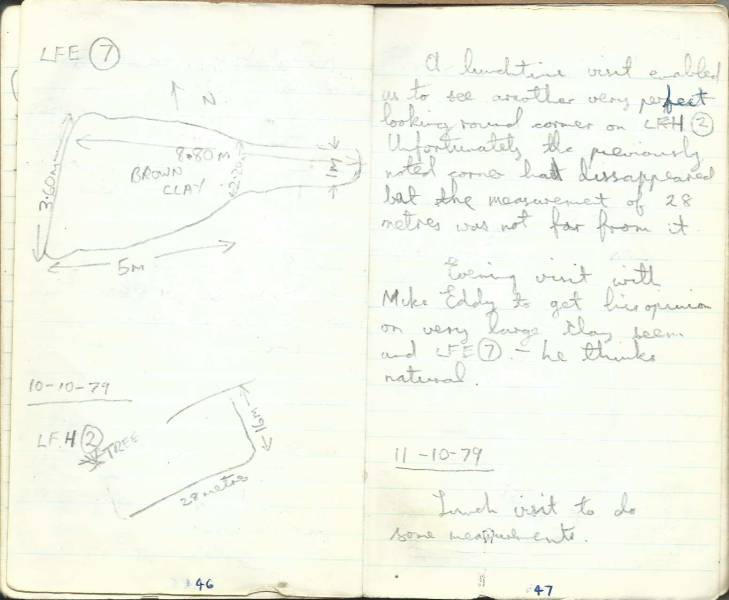 LFE 7
N
8.80M
BROWN
CLAY
2.20m
1M
3.60m
5m
10-10-79
LF.H 2
TREE
16M
28 metres
46
A lunchtime visit enabled
us to see another very perfect
looking round corner on LFH 2
Unfortunately the previously
noted corner had dissappeared
but the measuremet of 28
metres was not far from it.
Evening visit with
Mike Eddy to get his opinion
on very large clay seem
and LFE 7 - he thinks
natural.
11-10-79
Lunch visit to do
some measurements.
47